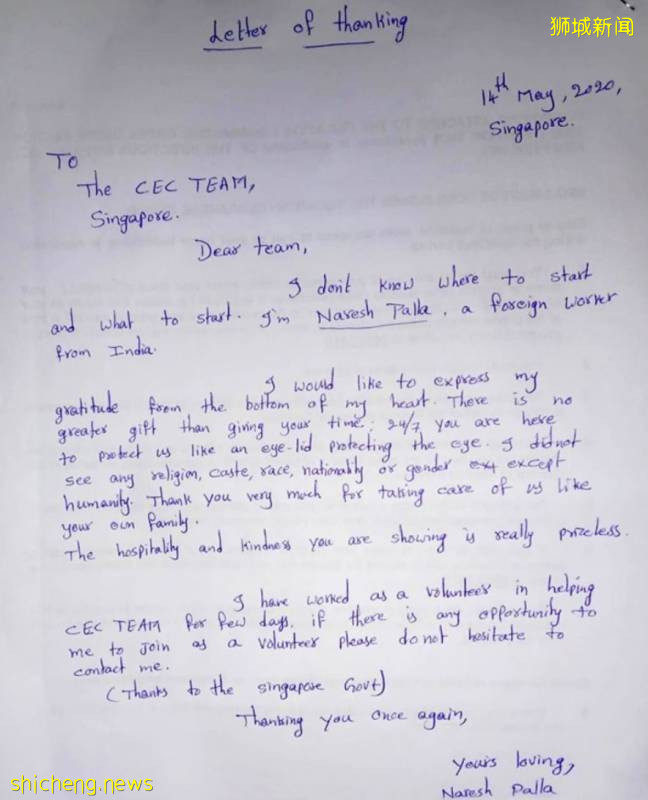 狮城新闻
Letter of thanking
14th May, 2020,
Singapore.
To
The CEC TEAM,
Singapore.
Dear team,
I don't know where to start
and what to start. I'm Naresh Palla, a foreign worker
from India.
I would like to express my
gratitude from the bottom of my heart. There is no
greater gift than giving your time. 24/7 you are here
to protect us like an eye-lid protecting the eye. I did not
see any religion, caste, race, nationality or gender except
humanity. Thank you very much for taking care of us like
your own family.
The hospitality and kindness you are showing is really priceless.
I have worked as a volunteer in helping
CEC TEAM for few days. if there is any opportunity to
me to join as a volunteer please do not hesitate to
contact me.
(Thanks to the singapore Govt)
Thanking you once again,
Yours loving,
Naresh Palla
shicheng.news